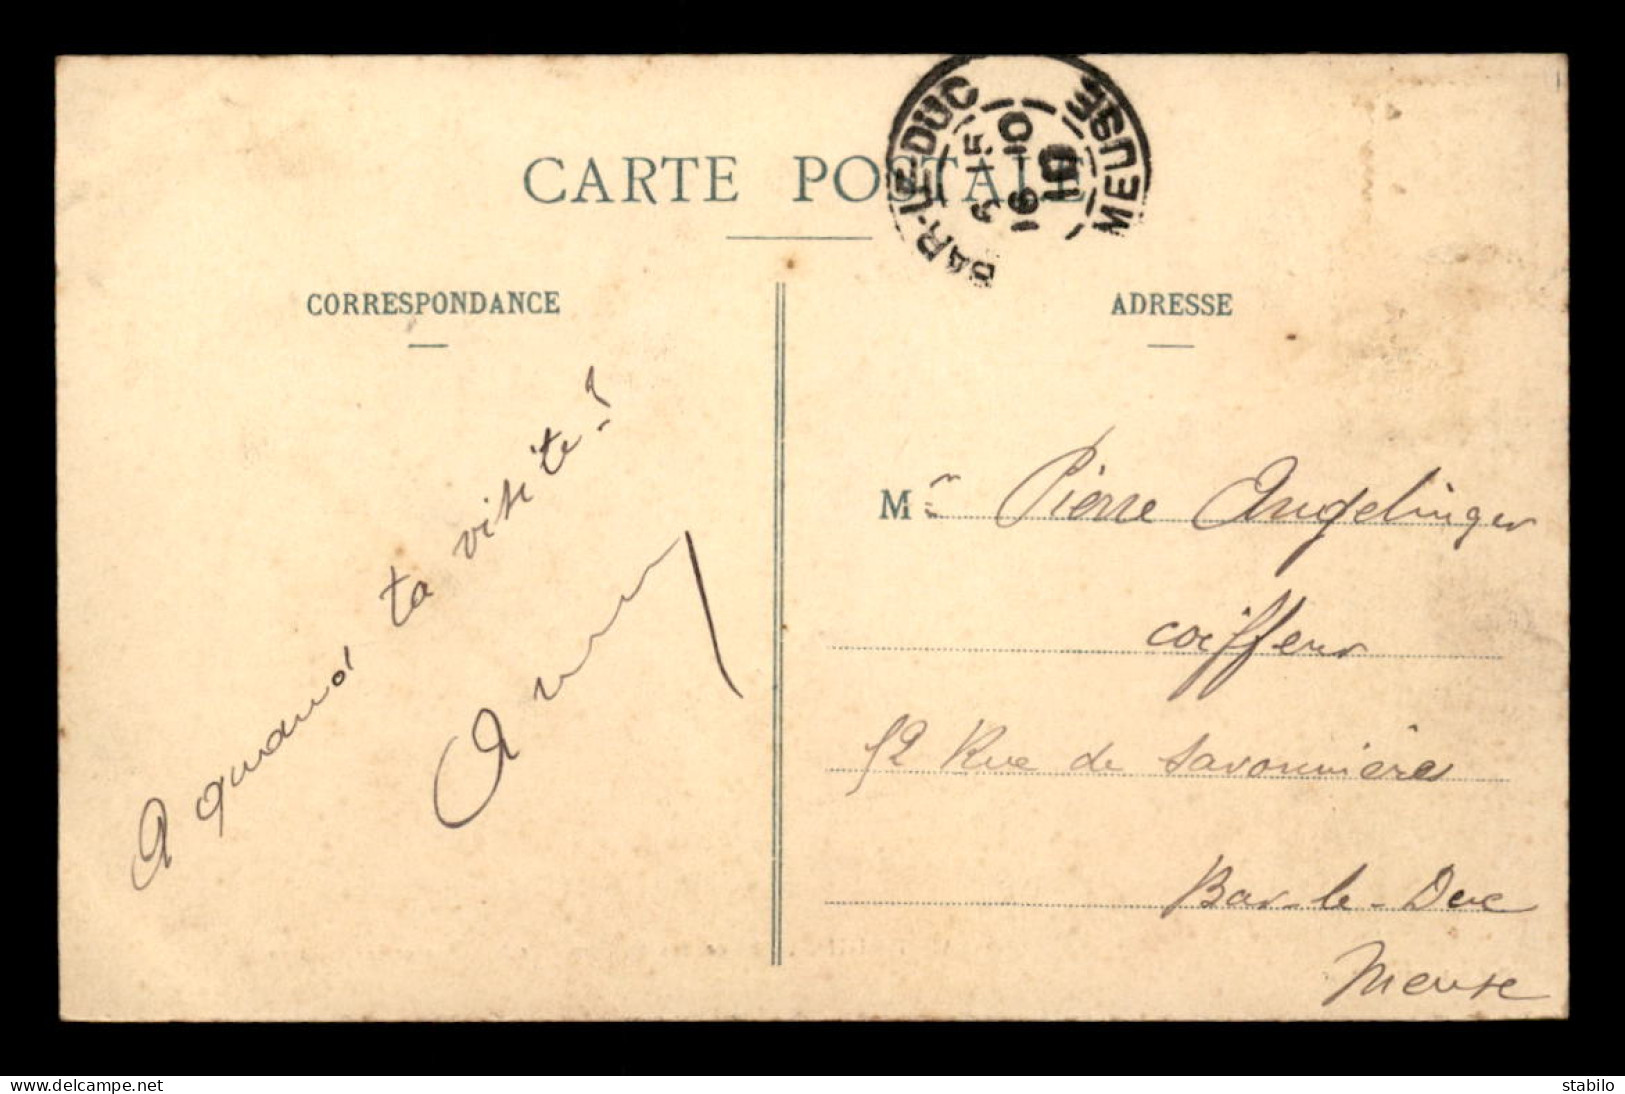 CARTE POSTALE
BAR-LE-DUC
MEUSE
9 15
16 - 10
CORRESPONDANCE
ADRESSE
A quand ta visite !
Mr Pierre Angelinger
coiffeur
52 Rue de Savonnière
Bar-le-Duc
Meuse
delcampe.net
stabilo